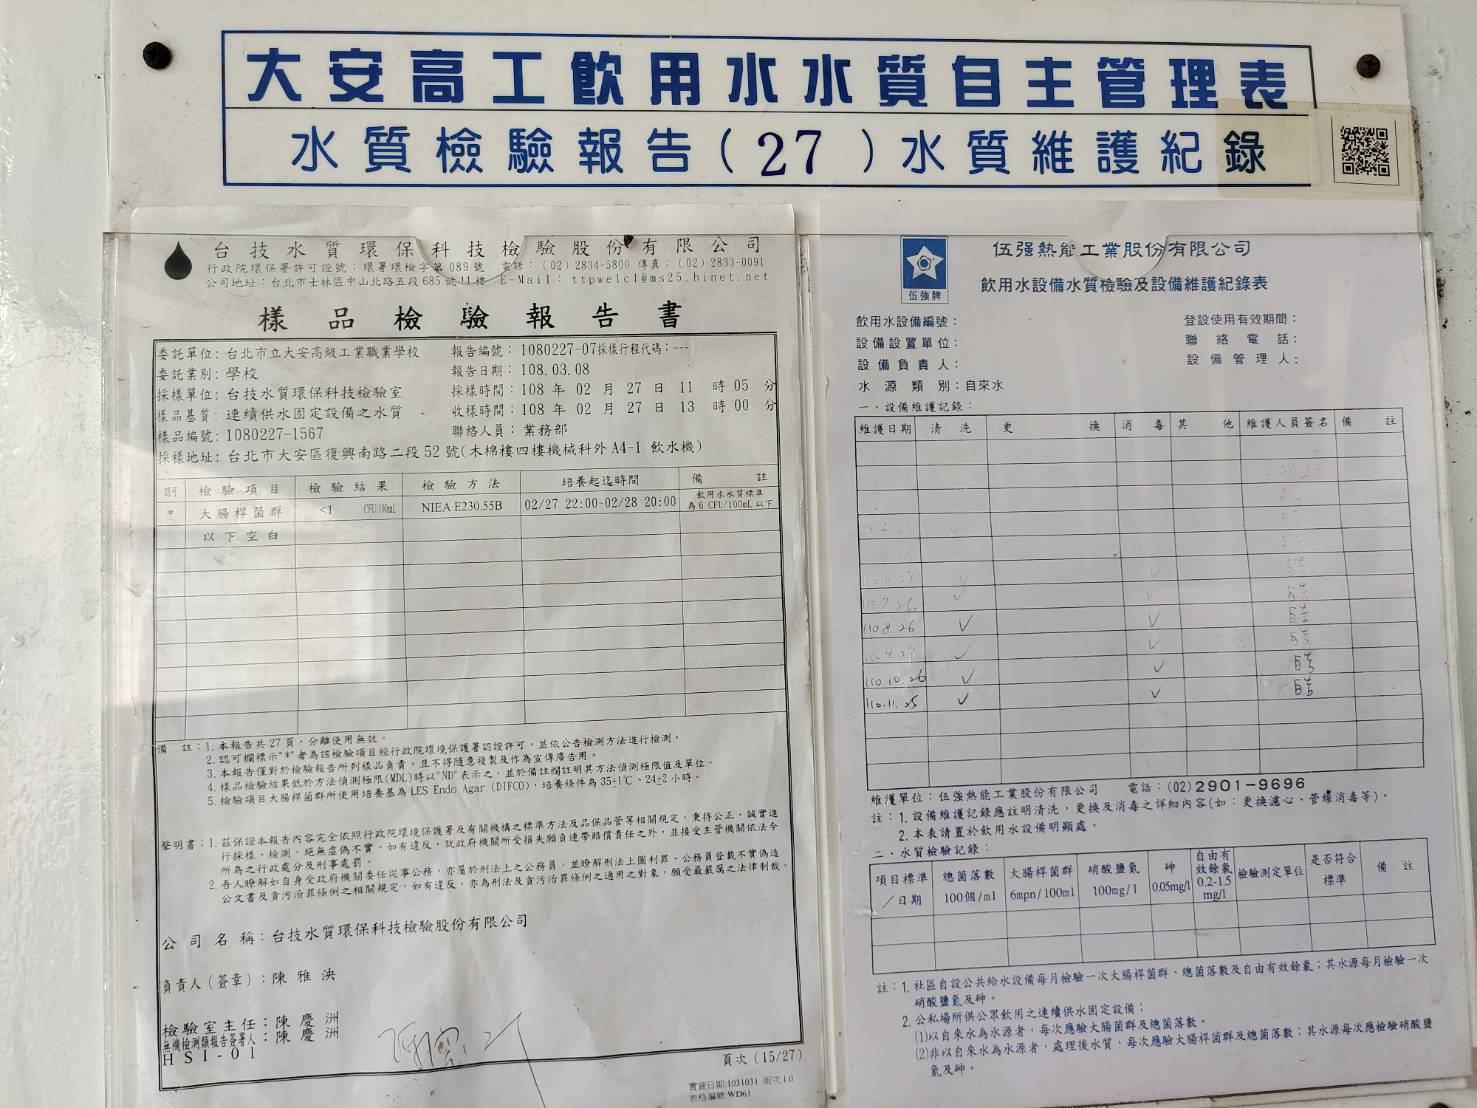 大安高工飲用水水質自主管理表
水質檢驗報告(27)水質維護紀錄
台技水質環保科技檢驗股份有限公司
行政院環保署許可證號：環署環檢字第089號 電話：（02）2834-5800 傳真：（02）2833-0091
公司地址：台北市士林區中山北路五段685號11樓 E-Mail：ttpwelcl@ms25.hinet.net
樣品檢驗報告書
委託單位：台北市立大安高級工業職業學校 報告編號：1080227-07採樣行程代碼：---
委託業別：學校 報告日期：108.03.08
採樣單位：台技水質環保科技檢驗室 採樣時間：108 年 02 月 27 日 11 時 05 分
樣品基質：連續供水固定設備之水質 收樣時間：108 年 02 月 27 日 13 時 00 分
樣品編號：1080227-1567 聯絡人員：業務部
採樣地址：台北市大安區復興南路二段52號(木棉樓四樓機械科外A4-1飲水機)
檢驗項目 檢驗結果 檢驗方法 培養起迄時間 備註
* 大腸桿菌群 <1 CFU/100mL NIEA E230.55B 02/27 22:00~02/28 20:00 飲用水水質標準
為6 CFU/100mL以下
以下空白
備 註：1.本報告共27頁，分離使用無效。
2.認可欄標示"*"者為該檢驗項目經行政院環境保護署認證許可，並依公告檢測方法進行檢測。
3.本報告僅對於檢驗報告所列樣品負責，且不得隨意複製及作為宣傳廣告用。
4.樣品檢驗結果低於方法偵測極限(MDL)時以"ND"表示之，並於備註欄註明其方法偵測極限值及單位。
5.檢驗項目大腸桿菌群所使用培養基為LES Endo Agar (DIFCO)，培養條件為35±1℃、24±2小時。
聲明書：1.茲保證本報告內容完全依照行政院環境保護署及有關機構之標準方法及品保品管等相關規定，秉持公正、誠實進
行採樣、檢測，絕無虛偽不實。如有違反，就政府機關所受損失願負連帶賠償責任之外，並接受主管機關依法令
所為之行政處分及刑事處罰。
2.吾人瞭解如自身受政府機關委任從事公務，亦屬於刑法上之公務員，並瞭解刑法上圖利罪、公務員登載不實偽造
公文書及貪污治罪條例之相關規定，如有違反，亦為刑法及貪污治罪條例之適用之對象，願受最嚴厲之法律制裁。
公司名稱：台技水質環保科技檢驗股份有限公司
負責人(簽章)：陳雅泱
檢驗室主任：陳慶洲
無機檢測類報告簽署人：陳慶洲
HSI-01
頁次(15/27)
實施日期:1031031 版次1.0
表格編號:WD61
伍強牌
伍强熱能工業股份有限公司
飲用水設備水質檢驗及設備維護紀錄表
飲用水設備編號： 登設使用有效期間：
設備設置單位： 聯絡電話：
設備負責人： 設備管理人：
水源類別：自來水
一、設備維護記錄：
維護日期 清洗 更換 消毒 其他 維護人員簽名 備註
110.7.26 ✓ ✓
110.8.26 ✓ ✓
110.9.29 ✓ ✓
110.10.26 ✓ ✓
110.11.25 ✓ ✓
維護單位：伍強熱能工業股份有限公司 電話：(02)2901-9696
註：1.設備維護記錄應註明清洗，更換及消毒之詳細內容(如：更換濾心、管線消毒等)。
2.本表請置於飲用水設備明顯處。
二、水質檢驗記錄：
項目標準／日期 總菌落數 100個/ml 大腸桿菌群 6mpn/100ml 硝酸鹽氮 100mg/l 砷 0.05mg/l 自由有效餘氯 0.2-1.5 mg/l 檢驗測定單位 是否符合標準 備註
註：1.社區自設公共給水設備每月檢驗一次大腸桿菌群、總菌落數及自由有效餘氯；其水源每月檢驗一次
硝酸鹽氮及砷。
2.公私場所供公眾飲用之連續供水固定設備；
(1)以自來水為水源者，每次應驗大腸桿菌群及總菌落數。
(2)非以自來水為水源者，處理後水質，每次應驗大腸桿菌群及總菌落數；其水源每次應檢驗硝酸鹽
氮及砷。